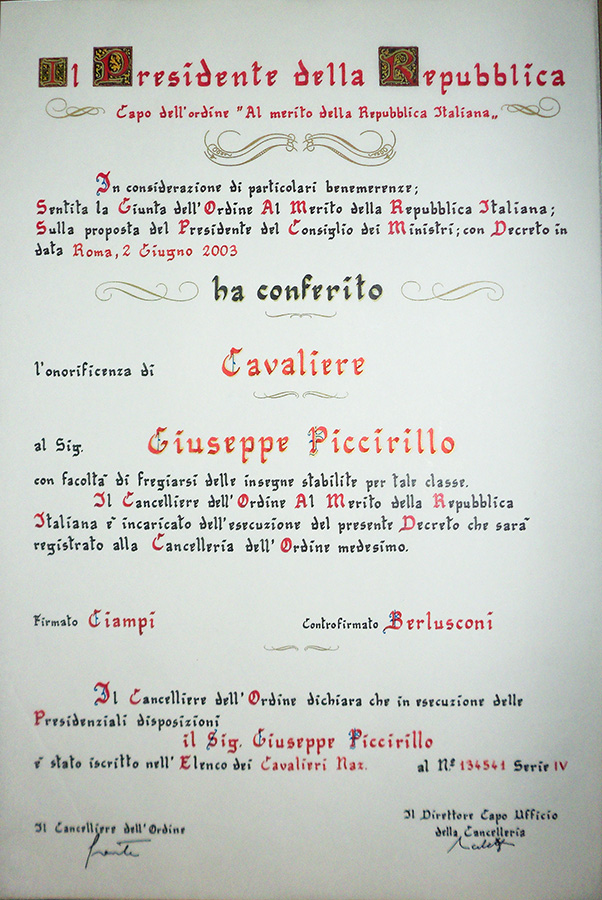 Il Presidente della Repubblica
Capo dell'ordine "Al merito della Repubblica Italiana„
In considerazione di particolari benemerenze;
Sentita la Giunta dell'Ordine Al Merito della Repubblica Italiana;
Sulla proposta del Presidente del Consiglio dei Ministri; con Decreto in
data Roma, 2 Giugno 2003
ha conferito
l'onorificenza di Cavaliere
al Sig. Giuseppe Piccirillo
con facoltà di fregiarsi delle insegne stabilite per tale classe.
Il Cancelliere dell'Ordine Al Merito della Repubblica
Italiana è incaricato dell'esecuzione del presente Decreto che sarà
registrato alla Cancelleria dell'Ordine medesimo.
Firmato Ciampi Controfirmato Berlusconi
Il Cancelliere dell'Ordine dichiara che in esecuzione delle
Presidenziali disposizioni
il Sig. Giuseppe Piccirillo
è stato iscritto nell'Elenco dei Cavalieri Naz. al N.º 134541 Serie IV
Il Cancelliere dell'Ordine
Il Direttore Capo Ufficio
della Cancelleria